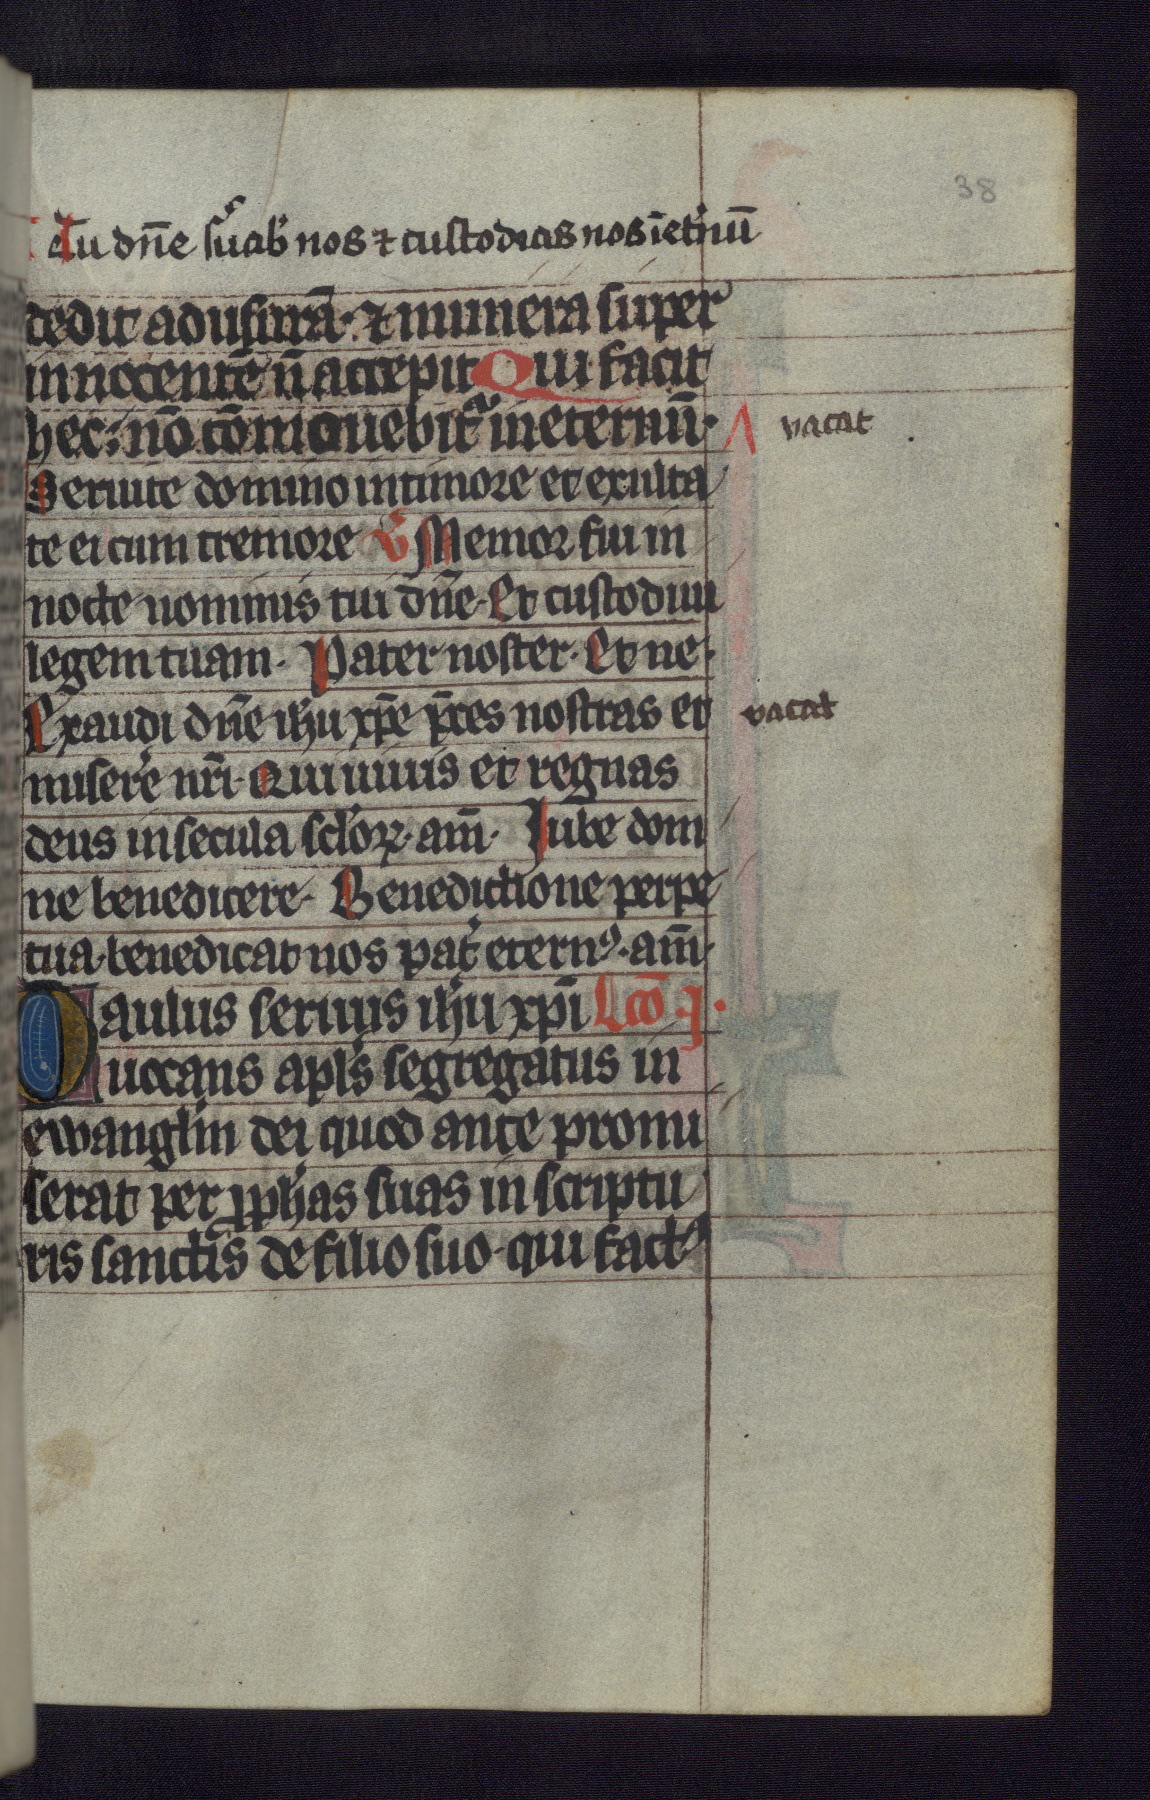 38
Tu dn̄e s̾uab̾ nos ⁊ custodias nos īet̾nuū
dedit ad usurā· ⁊ munera super
innocentē n̄ accepit Qui facit
hec· nō cōmouebit᷑ in eternū·
vacat
Seruite domino in timore et exulta
te ei cum tremore V̾ Memor fui in
nocte nominis tui dn̄e· Et custodiui
legem tuam· Pater noster· Et ne·
Exaudi dn̄e ihu xp̄e p̄ces nostras et
vacat
miserē nr̄i· Qui uiuis et regnas
deus in secula sclōꝝ· am̄· Iube dom
ne benedicere· Benedictione perpe
tua· benedicat nos pat̾ eternꝰ· am̄·
Paulus seruus ihu xp̄i Lc̄o j·
uocans apl̄s segregatus in
ewangl̄iu dei quod ante promi
serat per ꝓph̄as suas in scriptu
ris sanctis de filio suo· qui factꝰ